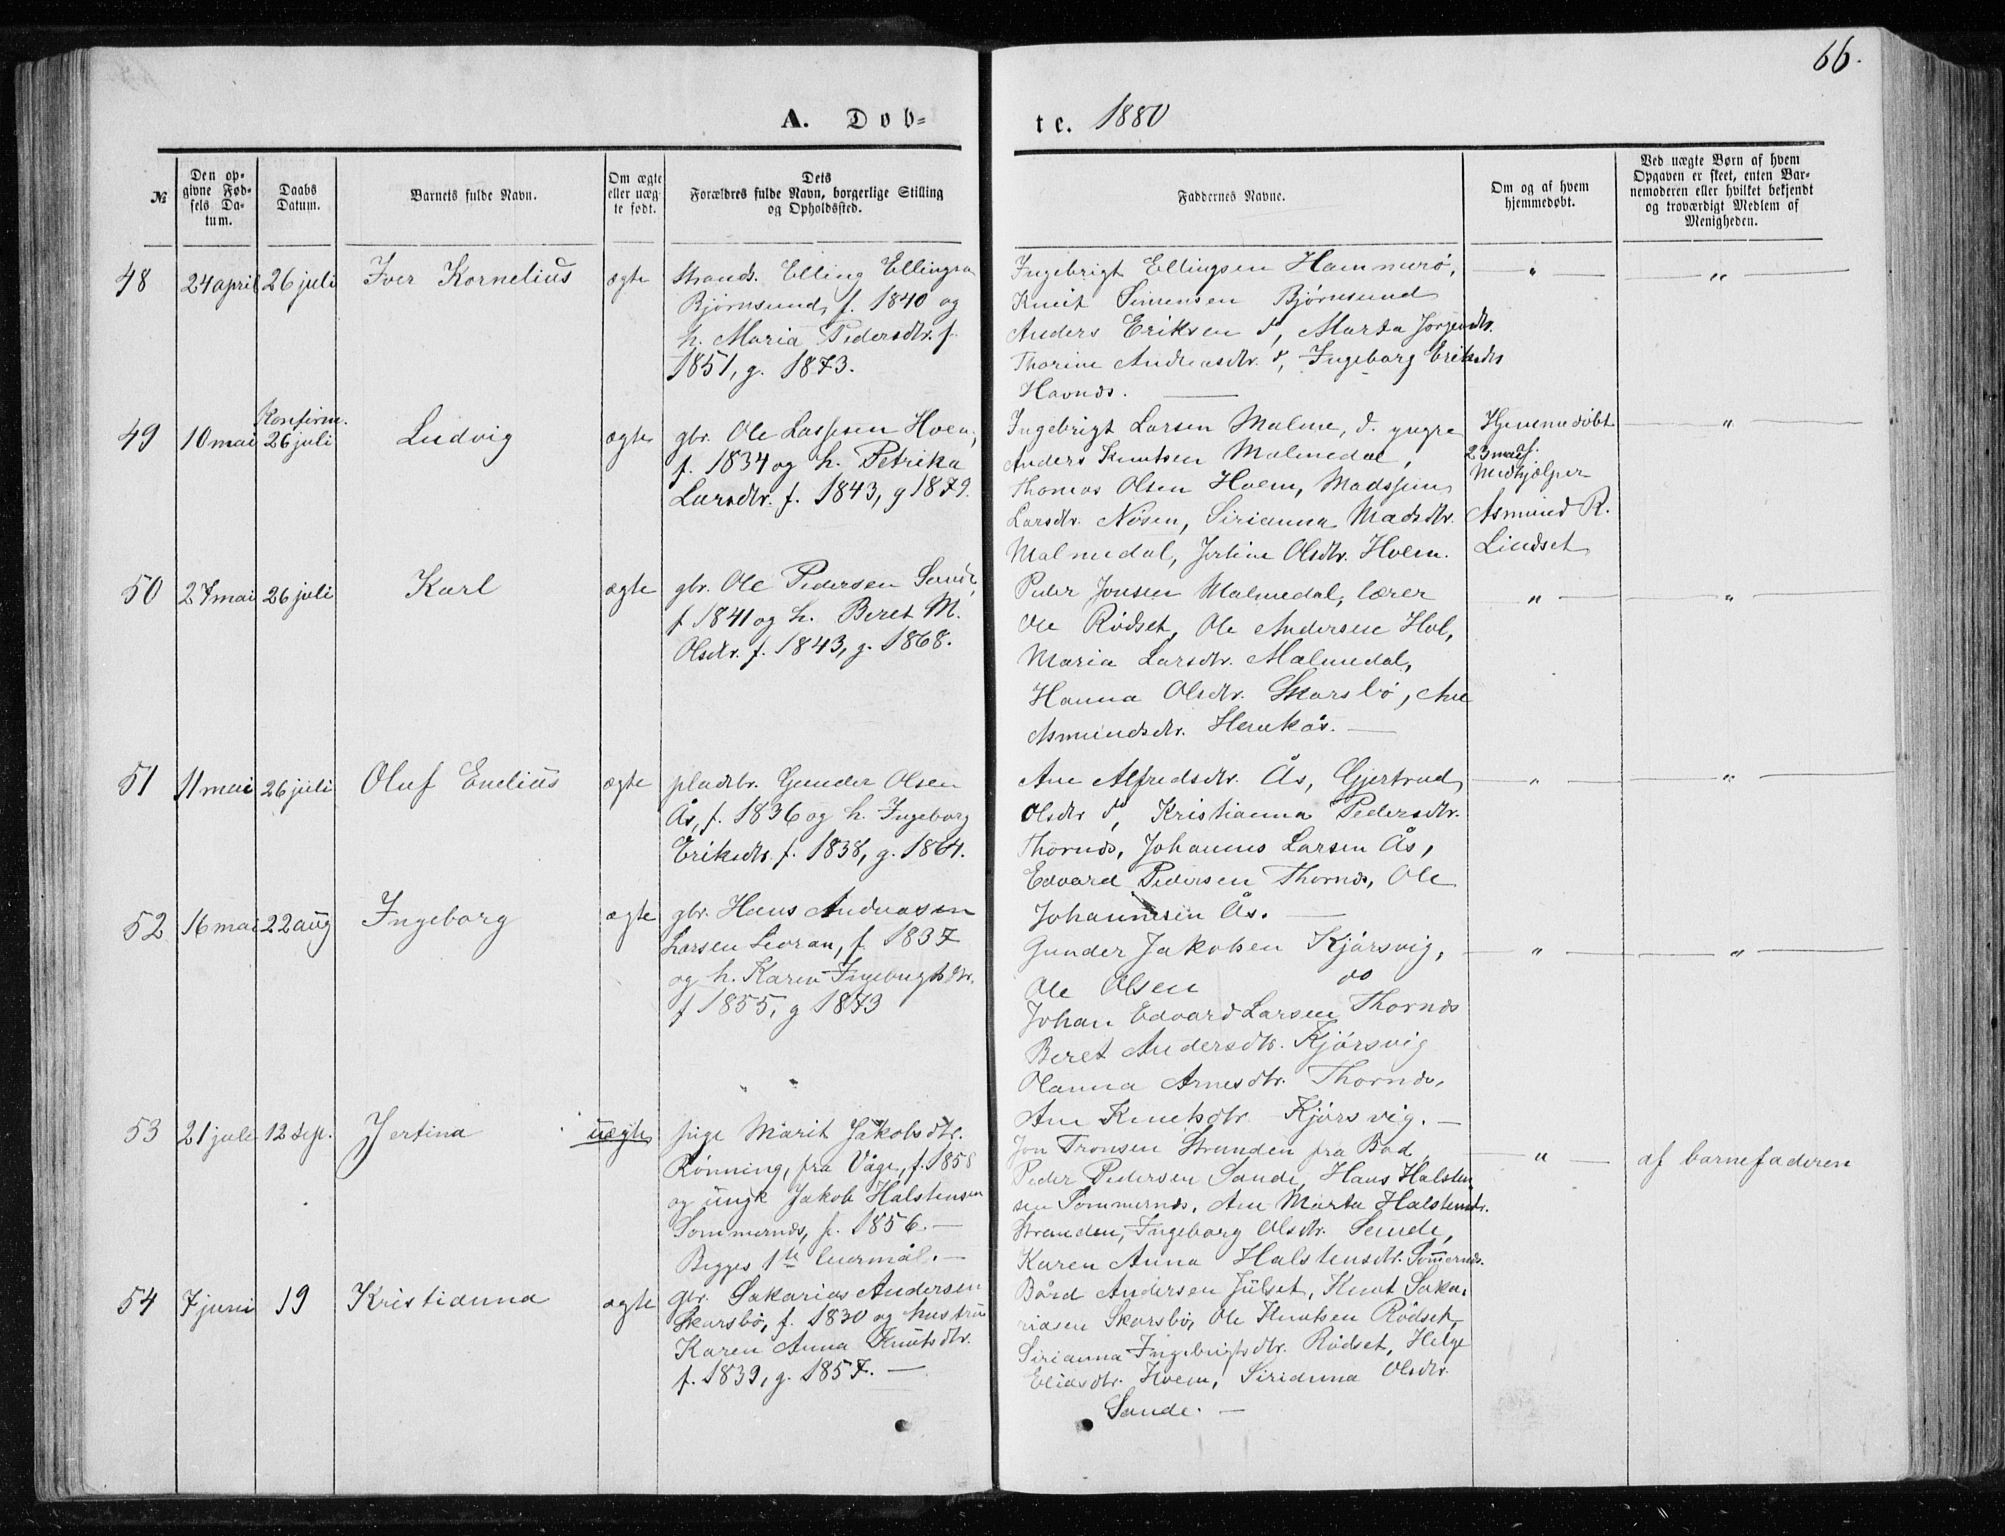 66.
A. Døb-
te. 1880
№
Den op-
givne Fød-
sels Da-
tum.
Daabs
Datum.
Barnets fulde Navn.
Om ægte
eller uæg-
te født.
Dets
Forældres fulde Navn, borgerlige Stilling
og Opholdssted.
Faddernes Navne.
Om og af hvem
hjemmedøbt.
Ved uægte Børn af hvem
Opgaven er skeet, enten Bar-
nemoderen eller hvilket bekjendt
og troværdigt Medlem af
Menigheden.
48 24 april 26 juli Iver Kornelius ægte
strands. Elling Ellingsen
Bjørnsund, f. 1840 og
h. Maria Pedersdtr. f.
1851, g. 1873.
Ingebrigt Ellingsen Hammerö,
Knut Simensen Bjørnsund
Anders Eriksen do, Marta Jørgensdtr.
Thorine Andreasdtr. do, Ingeborg Eriksdtr
Havnds. —
" "
49 10 mai Konfirm. 26 juli Ludvig ægte
gbr. Ole Lassesen Hoem,
f. 1834 og h. Petrika
Larsdtr. f. 1843, g 1879.
Ingebrigt Larsen Malme, d. yngre
Anders Knutsen Malmedal,
Thomas Olsen Hoem, Madssine
Larsdtr. Nøsen, Sirianna Madsdtr.
Malmedal, Jertine Olsdtr. Hoem.
Hjemmedøbt
23 mai af
Medhjælper
Asmund R.
Lindset
"
50 27 mai 26 juli Karl ægte
gbr. Ole Pedersen Sande,
f 1841 og h. Beret M.
Olsdtr. f. 1843, g. 1868.
Peder Jonsen Malmedal, lærer
Ole Rödset, Ole Andersen Hol,
Maria Larsdtr. Malmedal,
Hanna Olsdtr. Skarsbö, Ane
Asmundsdtr. Haukås. —
" "
51 11 mai 26 juli Oluf Enelius ægte
pladsbr. Gunder Olsen
Ås, f. 1836 og h. Ingeborg
Eriksdtr. f. 1838, g. 1864.
Ane Alfredsdtr. Ås, Gjertrud
Olsdtr do, Kristianna Pedersdtr.
Thornds, Johannes Larsen Ås,
Edvard Pedersen Thornds, Ole
Johannesen Ås. —
" "
52 16 mai 22 aug Ingeborg ægte
gbr. Hans Andreasen
Larsen f. 1837
og h. Karen Ingebrigtsdtr.
f 1855, g 1873
Gunder Jakobsen Kjörsvig,
Ole Olsen do
Johan Edvard Larsen Thornds
Beret Andersdtr. Kjörsvig
Olanna Arnesdtr. Thornds,
Ane Knutsdtr. Kjörsvig. —
" "
53 21 juli 12 sep. Jertina uægte
pige Marit Jakobsdtr.
Rönning, fra Våge, f. 1858
og ungk Jakob Halstensen
Sommernds, f. 1856. —
Begges 1te leiermål. —
Jon Tronsen Stranden fra Bod,
Peder Pedersen Sande, Hans Halsten
sen Sommernds, Ane Marta Halstensdtr.
Stranden, Ingeborg Olsdtr. Sande,
Karen Anna Halstensdtr. Sommernds.
" af barnefaderen
54 7 juni 19 Kristianna ægte
gbr. Sakarias Andersen
Skarsbö, f. 1830 og hustru
Karen Anna Knutsdtr.
f. 1839, g. 1857. —
Bård Andersen Julset, Knut Saka-
riasen Skarsbö, Ole Knutsen Rödset,
Sirianna Ingebrigtsdtr. Rödset, Helge
Eliasdtr. Hoem, Sirianna Olsdtr.
Sande. —